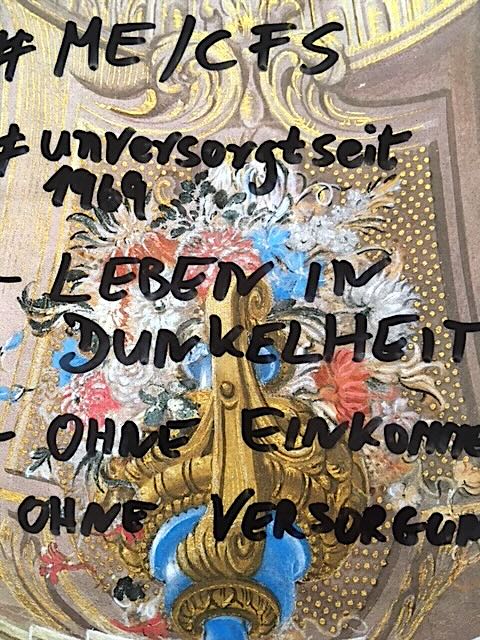 # ME/CFS
# unversorgtseit
1969
- LEBEN IN
DUNKELHEIT
- OHNE EINKOMME
OHNE VERSORGUN